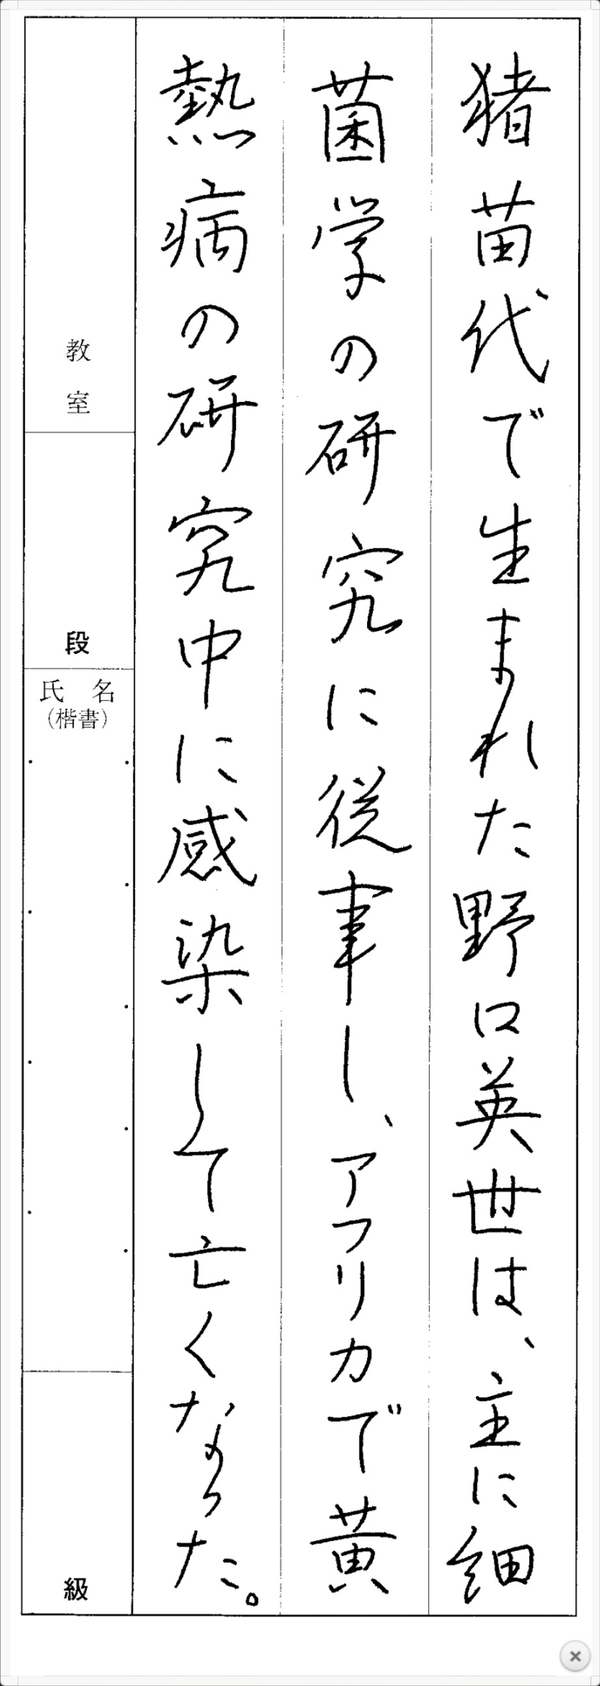 猪苗代で生まれた野口英世は、主に細
菌学の研究に従事し、アフリカで黄
熱病の研究中に感染して亡くなった。
教室
段
氏名
（楷書）
級